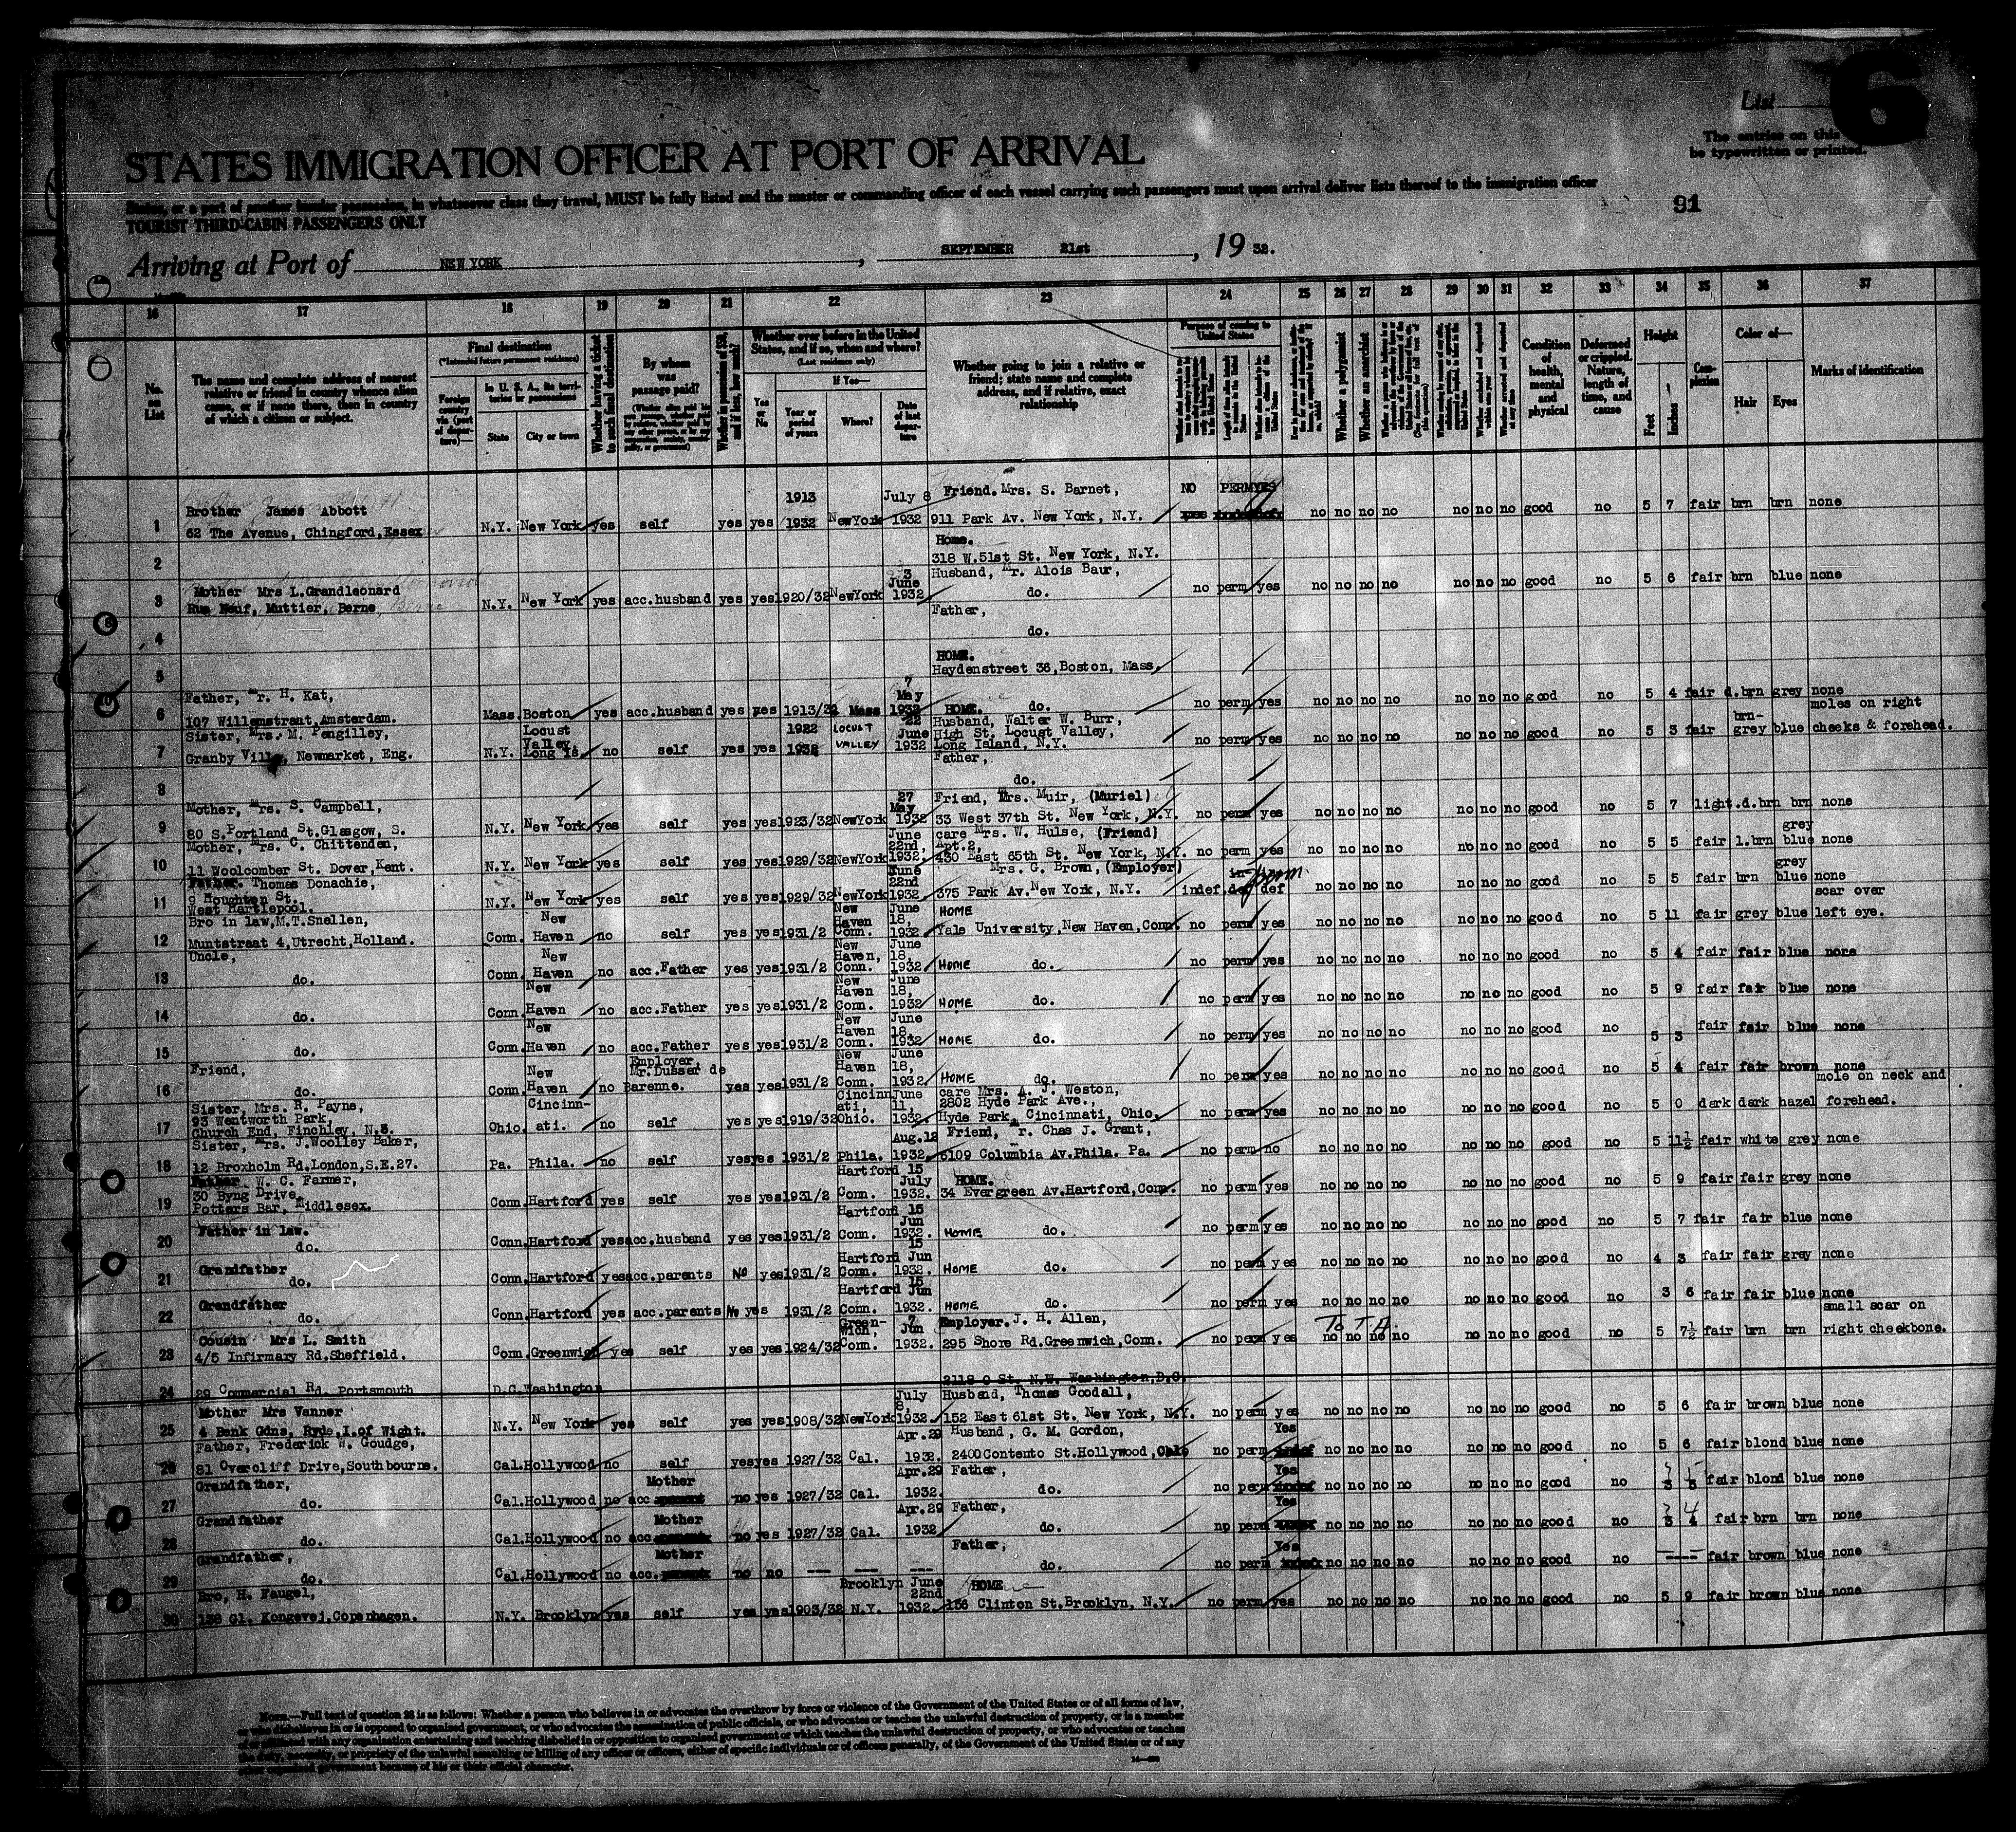 List 6
The entries on this
be typewritten or printed.
STATES IMMIGRATION OFFICER AT PORT OF ARRIVAL
States, or a part of another insular possession, in whatsoever class they travel, MUST be fully listed and the master or commanding officer of each vessel carrying such passengers must upon arrival deliver lists thereof to the immigration officer
91
TOURIST THIRD-CABIN PASSENGERS ONLY
Arriving at Port of NEW YORK, SEPTEMBER 21st, 19 32.
16 17 18 19 20 21 22 23 24 25 26 27 28 29 30 31 32 33 34 35 36 37
No. on List
The name and complete address of nearest relative or friend in country whence alien came, or if none there, then in country of which a citizen or subject.
Final destination
(*Intended future permanent residence)
Foreign country via (port of departure)—
In U. S. A., its territories or possessions
State
City or town
Whether having a ticket to such final destination
By whom was passage paid?
Whether in possession of $50, and if less, how much?
Whether ever before in the United States, and if so, when and where?
(Last residence only)
Yes or No
If Yes—
Year or period of years
Where?
Date of last departure
Whether going to join a relative or friend; state name and complete address, and if relative, exact relationship
Purpose of coming to United States
Whether a polygamist
Whether an anarchist
Condition of health, mental and physical
Deformed or crippled. Nature, length of time, and cause
Height
Feet
Inches
Complexion
Color of—
Hair
Eyes
Marks of identification
1 Brother James Abbott 62 The Avenue, Chingford, Essex N.Y. New York yes self yes yes 1913 1932 NewYork July 8 1932 Friend. Mrs. S. Barnet, 911 Park Av. New York, N.Y. NO PERM YES no no no no no no no good no 5 7 fair brn brn none
2 Home. 318 W.51st St. New York, N.Y.
3 Mother Mrs L.Grandleonard Rue Neuf, Muttier, Berne N.Y. New York yes acc.husband yes yes 1920/32 NewYork 3 June 1932 Husband, Mr. Alois Baur, do. no perm yes no no no no no no no good no 5 6 fair brn blue none
4 Father, do.
5 HOME. Haydenstreet 36, Boston, Mass.
6 Father, Mr. H. Kat, 107 Willemstraat, Amsterdam. Mass. Boston yes acc.husband yes yes 1913/32 Mass 7 May 1932 HOME. do. no perm yes no no no no no no no good no 5 4 fair d.brn grey none
7 Sister, Mrs. M. Pengilley, Granby Villa, Newmarket, Eng. N.Y. Locust Valley Long Is. no self yes yes 1922 1932 LOCUST VALLEY 22 June 1932 Husband, Walter W. Burr, High St. Locust Valley, Long Island, N.Y. no perm yes no no no no no no no good no 5 3 fair brn-grey blue moles on right cheeks & forehead.
8 Father, do.
9 Mother, Mrs. S. Campbell, 80 S.Portland St.Glasgow, S. N.Y. New York yes self yes yes 1923/32 NewYork 27 May 1932 Friend, Mrs. Muir, (Muriel) 33 West 37th St. New York, N.Y. no perm yes no no no no no no no good no 5 7 light.d.brn brn none
10 Mother, Mrs. C. Chittenden, 11 Woolcomber St. Dover, Kent. N.Y. New York yes self yes yes 1929/32 NewYork June 22nd, 1932. care Mrs. W. Hulse, (Friend) Apt.2, 430 East 65th St. New York, N.Y. no perm yes no no no no no no no good no 5 5 fair l.brn grey blue none
11 Father. Thomas Donachie, 9 Houghton St. West Hartlepool. N.Y. New York yes self yes yes 1929/32 NewYork June 22nd 1932. Mrs. G. Brown, (Employer) 375 Park Av. New York, N.Y. indef. perm def no no no no no no no good no 5 5 fair brn grey blue none
12 Bro in law, M.T.Snellen, Muntstraat 4, Utrecht, Holland. Conn. New Haven no self yes yes 1931/2 New Haven Conn. June 18, 1932. HOME Yale University, New Haven, Conn. no perm yes no no no no no no no good no 5 11 fair grey blue scar over left eye.
13 Uncle, do. Conn. New Haven no acc.Father yes yes 1931/2 New Haven, Conn. June 18, 1932. HOME do. no perm yes no no no no no no no good no 5 4 fair fair blue none
14 do. Conn. New Haven no acc.Father yes yes 1931/2 New Haven Conn. June 18, 1932 HOME do. no perm yes no no no no no no no good no 5 9 fair fair blue none
15 do. Conn. New Haven no acc.Father yes yes 1931/2 New Haven Conn. June 18, 1932 HOME do. no perm yes no no no no no no no good no 5 3 fair fair blue none
16 Friend, do. Conn. New Haven no Employer, Mr.Dusser de Barenne. yes yes 1931/2 New Haven Conn. June 18, 1932. HOME do. no perm yes no no no no no no no good no 5 4 fair fair brown none
17 Sister, Mrs. R. Payne, 93 Wentworth Park, Church End, Finchley, N.3. Ohio. Cincinnati. no self yes yes 1919/32 Cincinnati, Ohio. June 11, 1932. care Mrs. A. J. Weston, 2802 Hyde Park Ave., Hyde Park, Cincinnati, Ohio. no perm yes no no no no no no no good no 5 0 dark dark hazel mole on neck and forehead.
18 Sister, Mrs. J.Woolley Baker, 12 Broxholm Rd. London, S.E.27. Pa. Phila. no self yes yes 1931/2 Phila. Aug.12 1932. Friend, Mr. Chas J. Grant, 6109 Columbia Av. Phila. Pa. no perm no no no no no no no no good no 5 11½ fair white grey none
19 Father W. C. Farmer, 30 Byng Drive, Potters Bar, Middlesex. Conn. Hartford yes self yes yes 1931/2 Hartford Conn. 15 July 1932. HOME. 34 Evergreen Av. Hartford, Conn. no perm yes no no no no no no no good no 5 9 fair fair grey none
20 Father in law. do. Conn. Hartford yes acc.husband yes yes 1931/2 Hartford Conn. 15 Jun 1932. HOME do. no perm yes no no no no no no no good no 5 7 fair fair blue none
21 Grandfather do. Conn. Hartford yes acc.parents No yes 1931/2 Hartford Conn. 15 Jun 1932. HOME do. no perm yes no no no no no no no good no 4 3 fair fair grey none
22 Grandfather do. Conn. Hartford yes acc.parents No yes 1931/2 Hartford Conn. 15 Jun 1932. HOME do. no perm yes no no no no no no no good no 3 6 fair fair blue none
23 Cousin Mrs L. Smith 4/5 Infirmary Rd. Sheffield. Conn. Greenwich yes self yes yes 1924/32 Greenwich, Conn. 7 Jun 1932. Employer. J. H. Allen, 295 Shore Rd. Greenwich, Conn. no perm yes no no no no no no no good no 5 7½ fair brn brn small scar on right cheekbone.
24 29 Commercial Rd. Portsmouth D.C. Washington 2118 O St. N.W. Washington, D.C.
25 Mother Mrs Vanner 4 Bank Gdns, Ryde, I.of Wight. N.Y. New York yes self yes yes 1908/32 NewYork July 8, 1932. Husband, Thomas Goodall, 152 East 61st St. New York, N.Y. no perm yes no no no no no no no good no 5 6 fair brown blue none
26 Father, Frederick W. Goudge, 81 Overcliff Drive, Southbourne. Cal. Hollywood no self yes yes 1927/32 Cal. Apr.29 1932. Husband, G. M. Gordon, 2400 Contento St. Hollywood, Cal. no perm Yes no no no no no no no good no 5 6 fair blond blue none
27 Grandfather, do. Cal. Hollywood no acc Mother no yes 1927/32 Cal. Apr.29 1932. Father, do. no perm Yes no no no no no no no good no 3 5 fair blond blue none
28 Grandfather do. Cal. Hollywood no acc. Mother no yes 1927/32 Cal. Apr.29 1932 Father, do. no perm Yes no no no no no no no good no 3 4 fair brn brn none
29 Grandfather, do. Cal. Hollywood no acc. Mother no no --- --- --- Father, do. no perm Yes no no no no no no no good no ---- fair brown blue none
30 Bro, H. Faugel, 138 Gl. Kongevej, Copenhagen. N.Y. Brooklyn yes self yes yes 1903/32 Brooklyn N.Y. June 22nd 1932. HOME 156 Clinton St. Brooklyn, N.Y. no perm yes no no no no no no no good no 5 9 fair brown blue none
NOTE.—Full text of question 28 is as follows: Whether a person who believes in or advocates the overthrow by force or violence of the Government of the United States or of all forms of law,
or who disbelieves in or is opposed to organized government, or who advocates the assassination of public officials, or who advocates or teaches the unlawful destruction of property, or is a member
of or affiliated with any organization entertaining and teaching disbelief in or opposition to organized government or which teaches the unlawful destruction of property, or who advocates or teaches
the duty, necessity, or propriety of the unlawful assaulting or killing of any officer or officers, either of specific individuals or of officers generally, of the Government of the United States or of any
other organized government because of his or their official character.